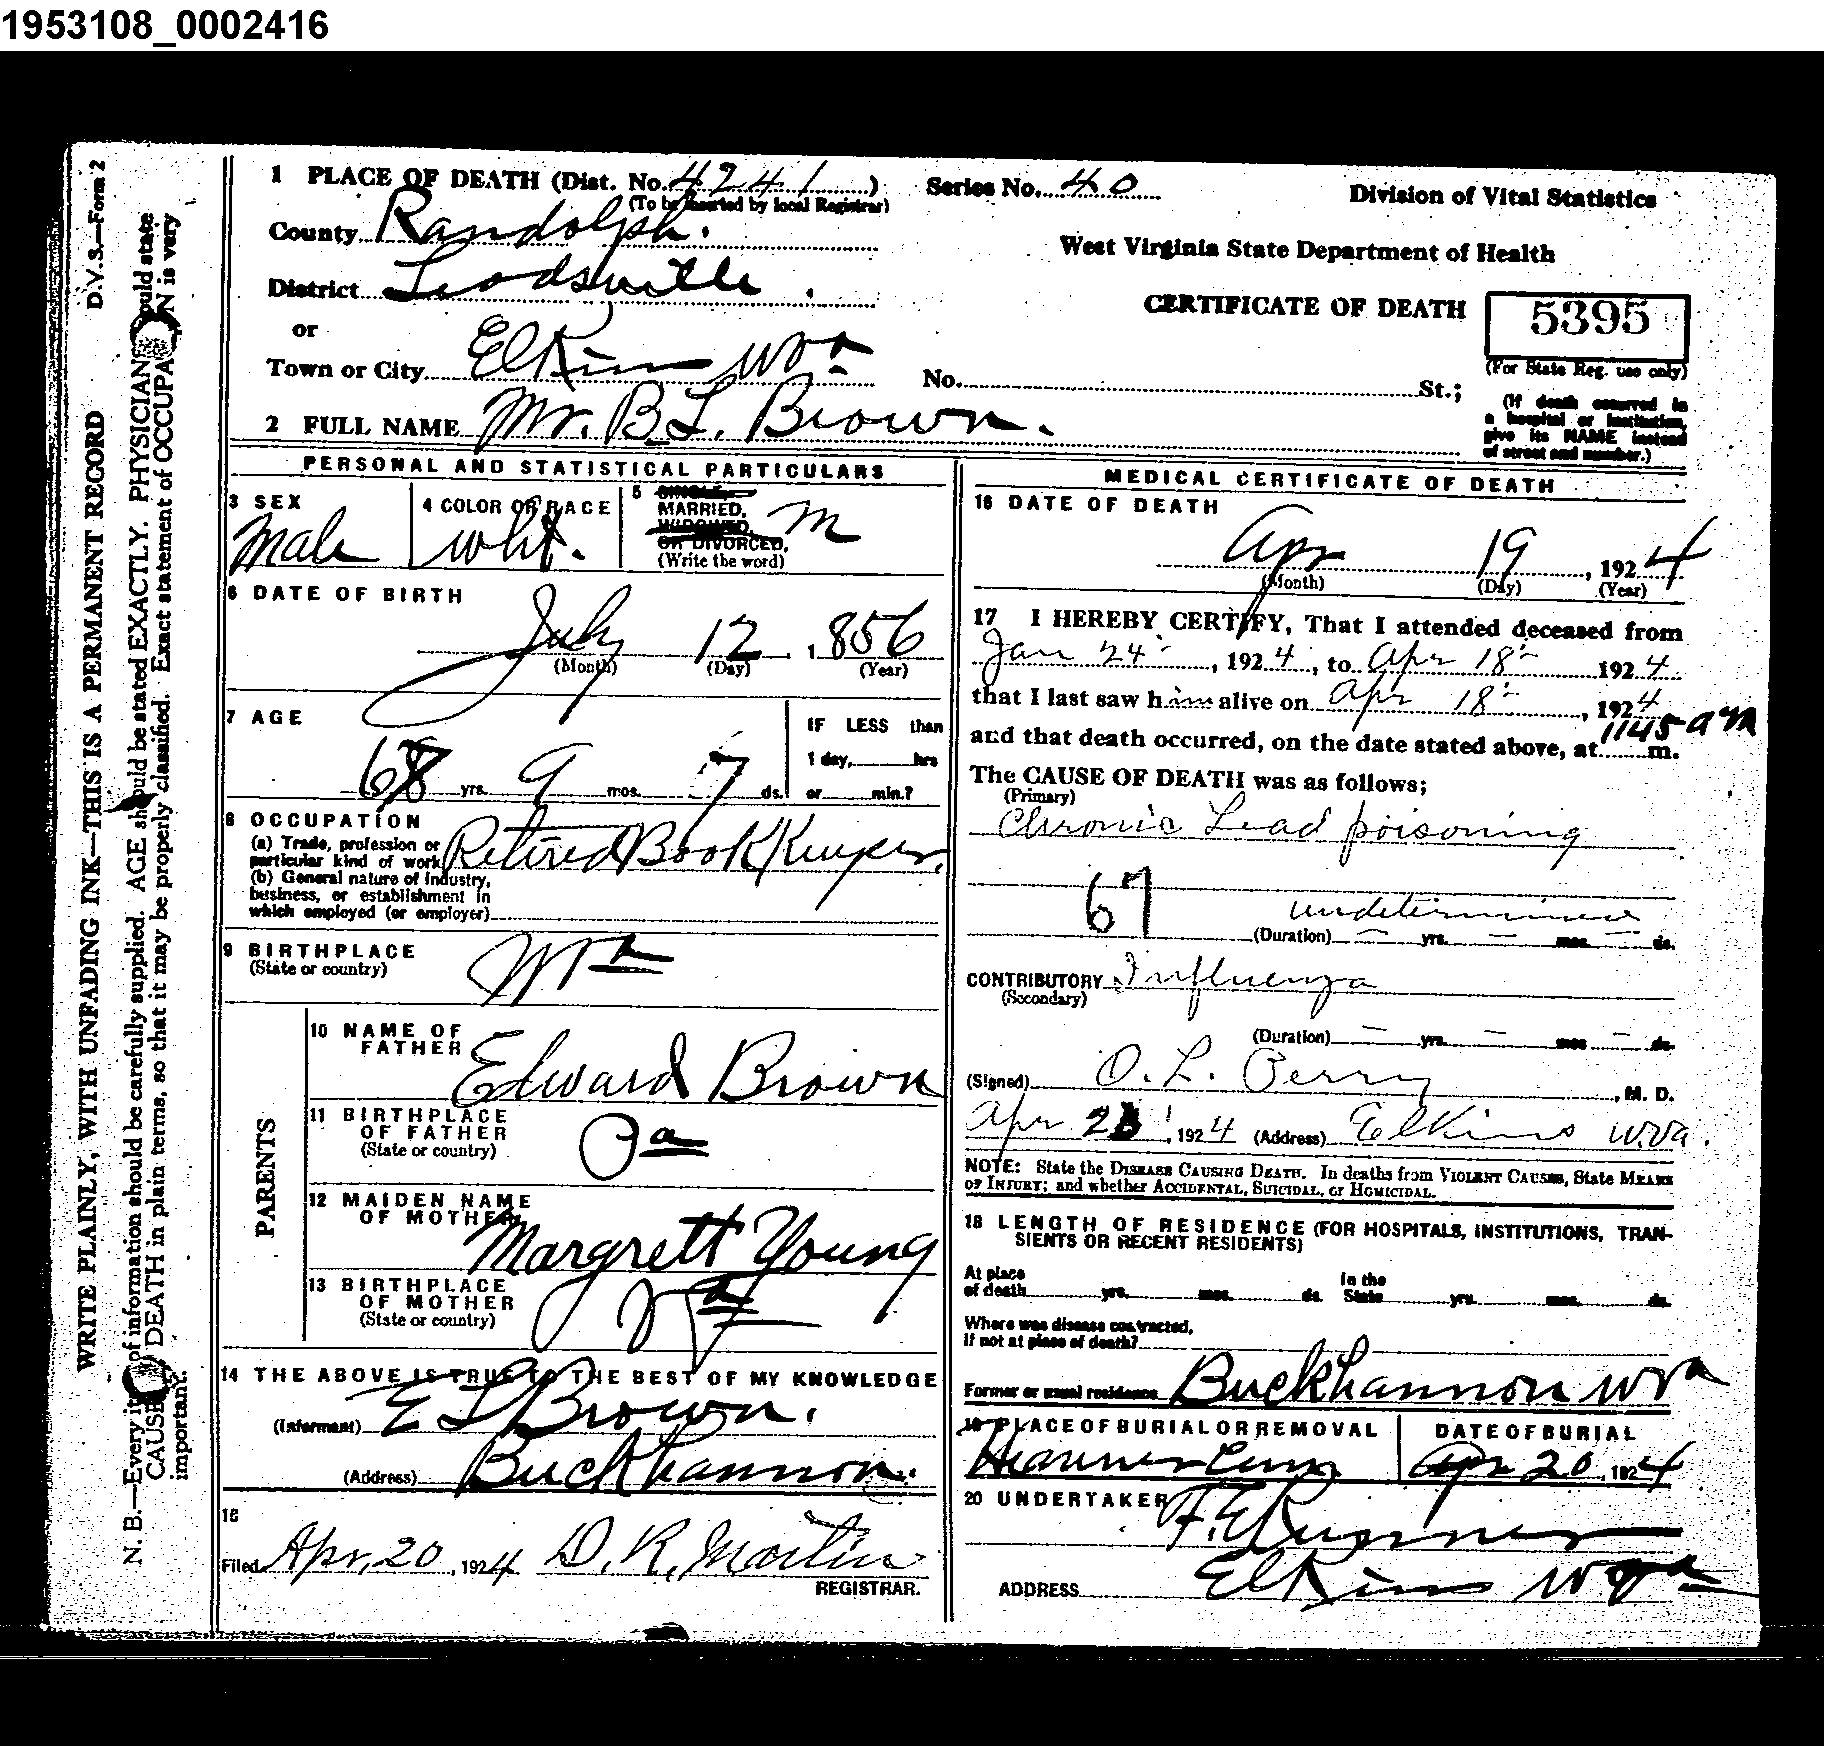 1953108_0002416
D.V.S.—Form 2
WRITE PLAINLY, WITH UNFADING INK—THIS IS A PERMANENT RECORD
N. B.—Every of information should be carefully supplied. AGE should be stated EXACTLY. PHYSICIAN should state
CAUSE DEATH in plain terms, so that it may be properly classified. Exact statement of OCCUPA N is very
important.
1 PLACE OF DEATH (Dist. No. 4241)
(To be inserted by local Registrar)
Series No. 40
Division of Vital Statistics
County Randolph.
West Virginia State Department of Health
District
CERTIFICATE OF DEATH
5395
(For State Reg. use only)
or
Town or City Elkins WVa
No. St.;
(If death occurred in
a hospital or institution,
give its NAME instead
of street and number.)
2 FULL NAME Mr. B. L. Brown.
PERSONAL AND STATISTICAL PARTICULARS
3 SEX
Male
4 COLOR OR RACE
Wht.
5 SINGLE,
MARRIED,
WIDOWED,
OR DIVORCED,
(Write the word)
M
6 DATE OF BIRTH
July 12, 1856
(Month) (Day) (Year)
7 AGE
yrs. 9 mos. 7 ds.
IF LESS than
1 day, hrs
or min.?
8 OCCUPATION
(a) Trade, profession or
particular kind of work
Retired Book Keeper.
(b) General nature of Industry,
business, or establishment in
which employed (or employer)
9 BIRTHPLACE
(State or country)
PARENTS
10 NAME OF
FATHER
Edward Brown
11 BIRTHPLACE
OF FATHER
(State or country)
Pa
12 MAIDEN NAME
OF MOTHER
Margrett Young
13 BIRTHPLACE
OF MOTHER
(State or country)
Va
14 THE ABOVE IS TRUE TO THE BEST OF MY KNOWLEDGE
(Informant) E L Brown.
(Address) Buckhannon.
15
Filed Apr. 20, 1924 D. R. Martin
REGISTRAR.
MEDICAL CERTIFICATE OF DEATH
16 DATE OF DEATH
Apr 19, 1924
(Month) (Day) (Year)
17 I HEREBY CERTIFY, That I attended deceased from
Jan 24, 1924, to Apr 18 1924
that I last saw him alive on Apr 18, 1924
and that death occurred, on the date stated above, at 1145 am m.
The CAUSE OF DEATH was as follows;
(Primary)
Chronic Lead poisoning
67 undetermined
(Duration) — yrs. — mos. — ds.
CONTRIBUTORY Influenza
(Secondary)
(Duration) — yrs. — mos. — ds.
(Signed) O. L. Perry, M. D.
Apr, 1924 (Address) Elkins W.Va.
NOTE: State the DISEASE CAUSING DEATH. In deaths from VIOLENT CAUSES, State MEANS
OF INJURY; and whether ACCIDENTAL, SUICIDAL, or HOMICIDAL.
18 LENGTH OF RESIDENCE (FOR HOSPITALS, INSTITUTIONS, TRAN-
SIENTS OR RECENT RESIDENTS)
At place
of death yrs. mos. ds.
In the
State yrs. mos. ds.
Where was disease contracted,
if not at place of death?
Former or usual residence Buckhannon WVa
19 PLACE OF BURIAL OR REMOVAL
DATE OF BURIAL
Apr 20, 1924
20 UNDERTAKER
ADDRESS Elkins WVa